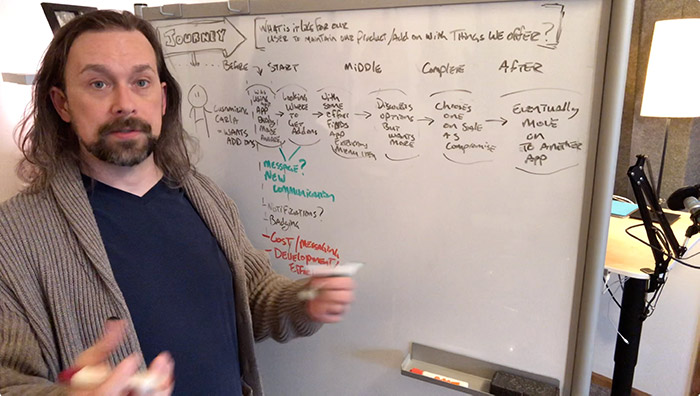 JOURNEY
[WHAT IS IT LIKE FOR OUR
USER TO MAINTAIN OUR PRODUCT/ADD ON WITH THINGS WE OFFER?]
BEFORE → START MIDDLE COMPLETE AFTER
CUSTOMIZING
CARLA
- WANTS
ADD ONS
USING
APP
LOOKING
WHERE
TO
GET
ADD ONS
WITH
SOME
EFFORT
FINDS
APP
MENU ITEM
DISCOVERS
OPTIONS
BUT
WANTS
MORE
CHOOSES
ONE
ON SALE
AS
COMPROMISE
EVENTUALLY
MOVE
ON
TO ANOTHER
APP
MESSAGE?
NEW
COMMUNICATION
- NOTIFICATIONS?
- BADGING
- COST/MESSAGING
- DEVELOPMENT/